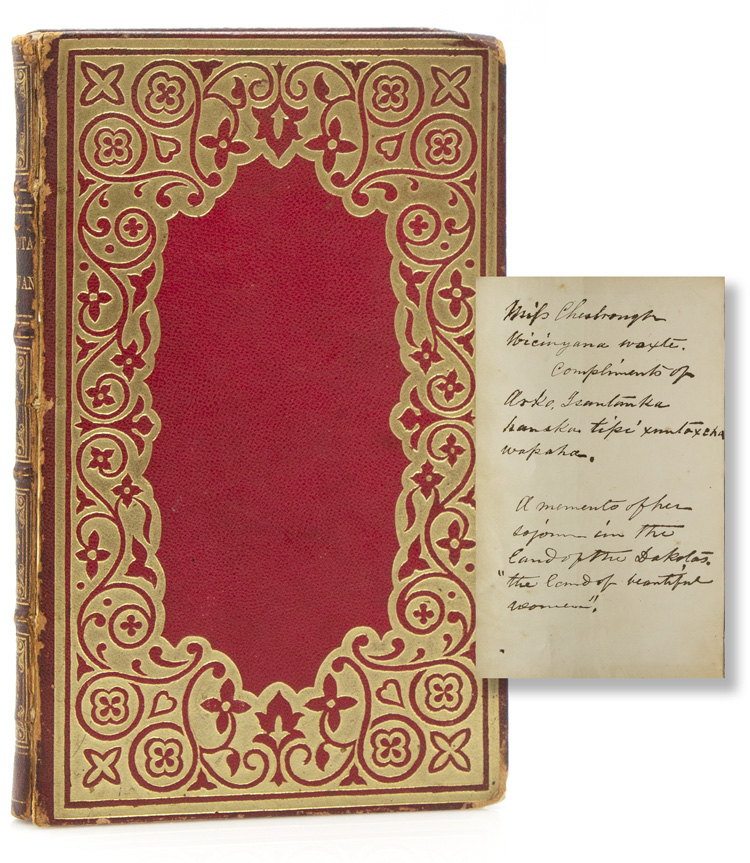 UTA
WAN
Miss Chesbrough
Wicinyana waxte.
Compliments of
Isantanka
hanska tipi
wapaha.
A memento of her
sojourn in the
Land of the Dakotas.
"the land of beautiful
women".